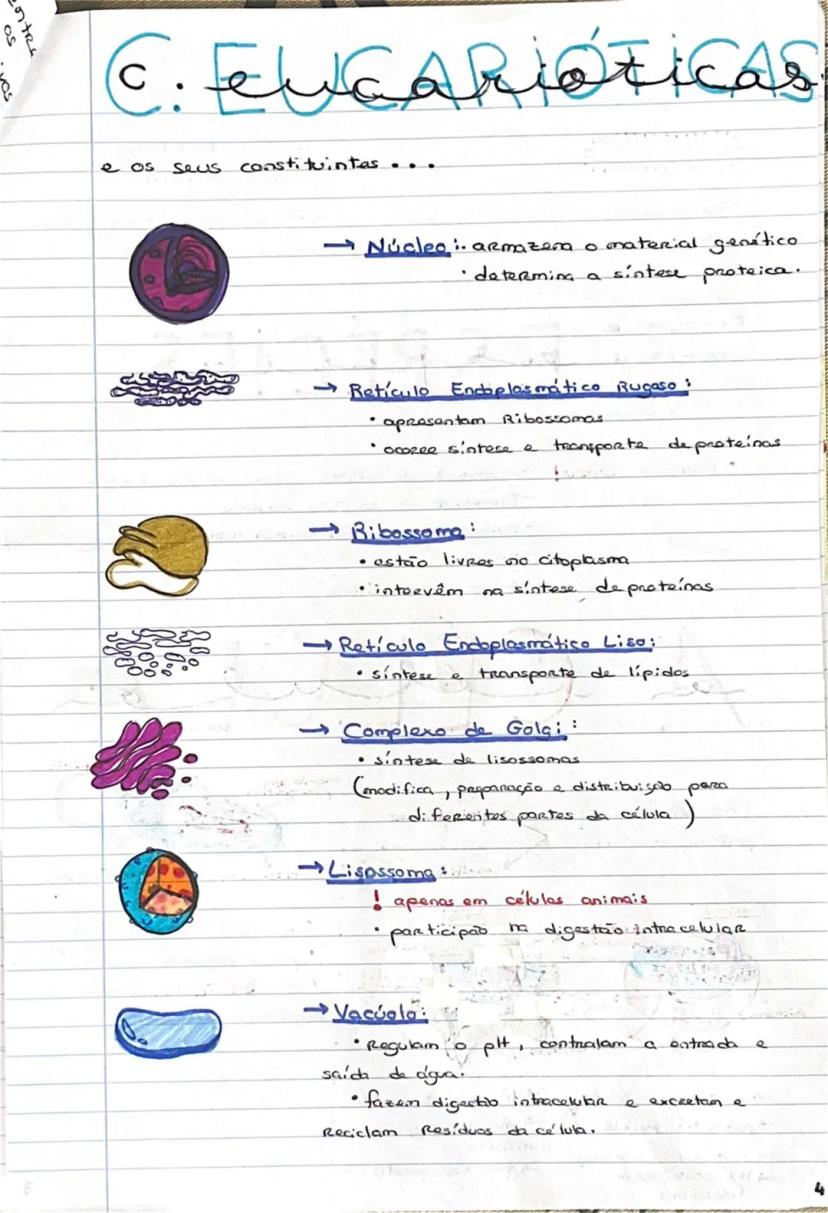 ontra
os
C. EUCARIÓTICAS
c. eucarióticas
e os seus constituintes...
→ Núcleo: • armazena o material genético
• determina a síntese proteica.
→ Retículo Endoplasmático Rugoso:
• apresentam Ribossomas
• ocorre síntese e transporte de proteínas
!
→ Ribossoma:
• estão livres no citoplasma
• intervêm na síntese de proteínas
→ Retículo Endoplasmático Liso:
• síntese e transporte de lípidos
→ Complexo de Golgi:
• síntese de lisossomas
(modifica, preparação e distribuição para
diferentes partes da célula)
→ Lisossoma:
! apenas em células animais
• participão na digestão intracelular
→ Vacúolo:
• Regulam o pH, controlam a entrada e
saída de água.
• fazem digestão intracelular e excretam e
Reciclam Resíduos da célula.
4